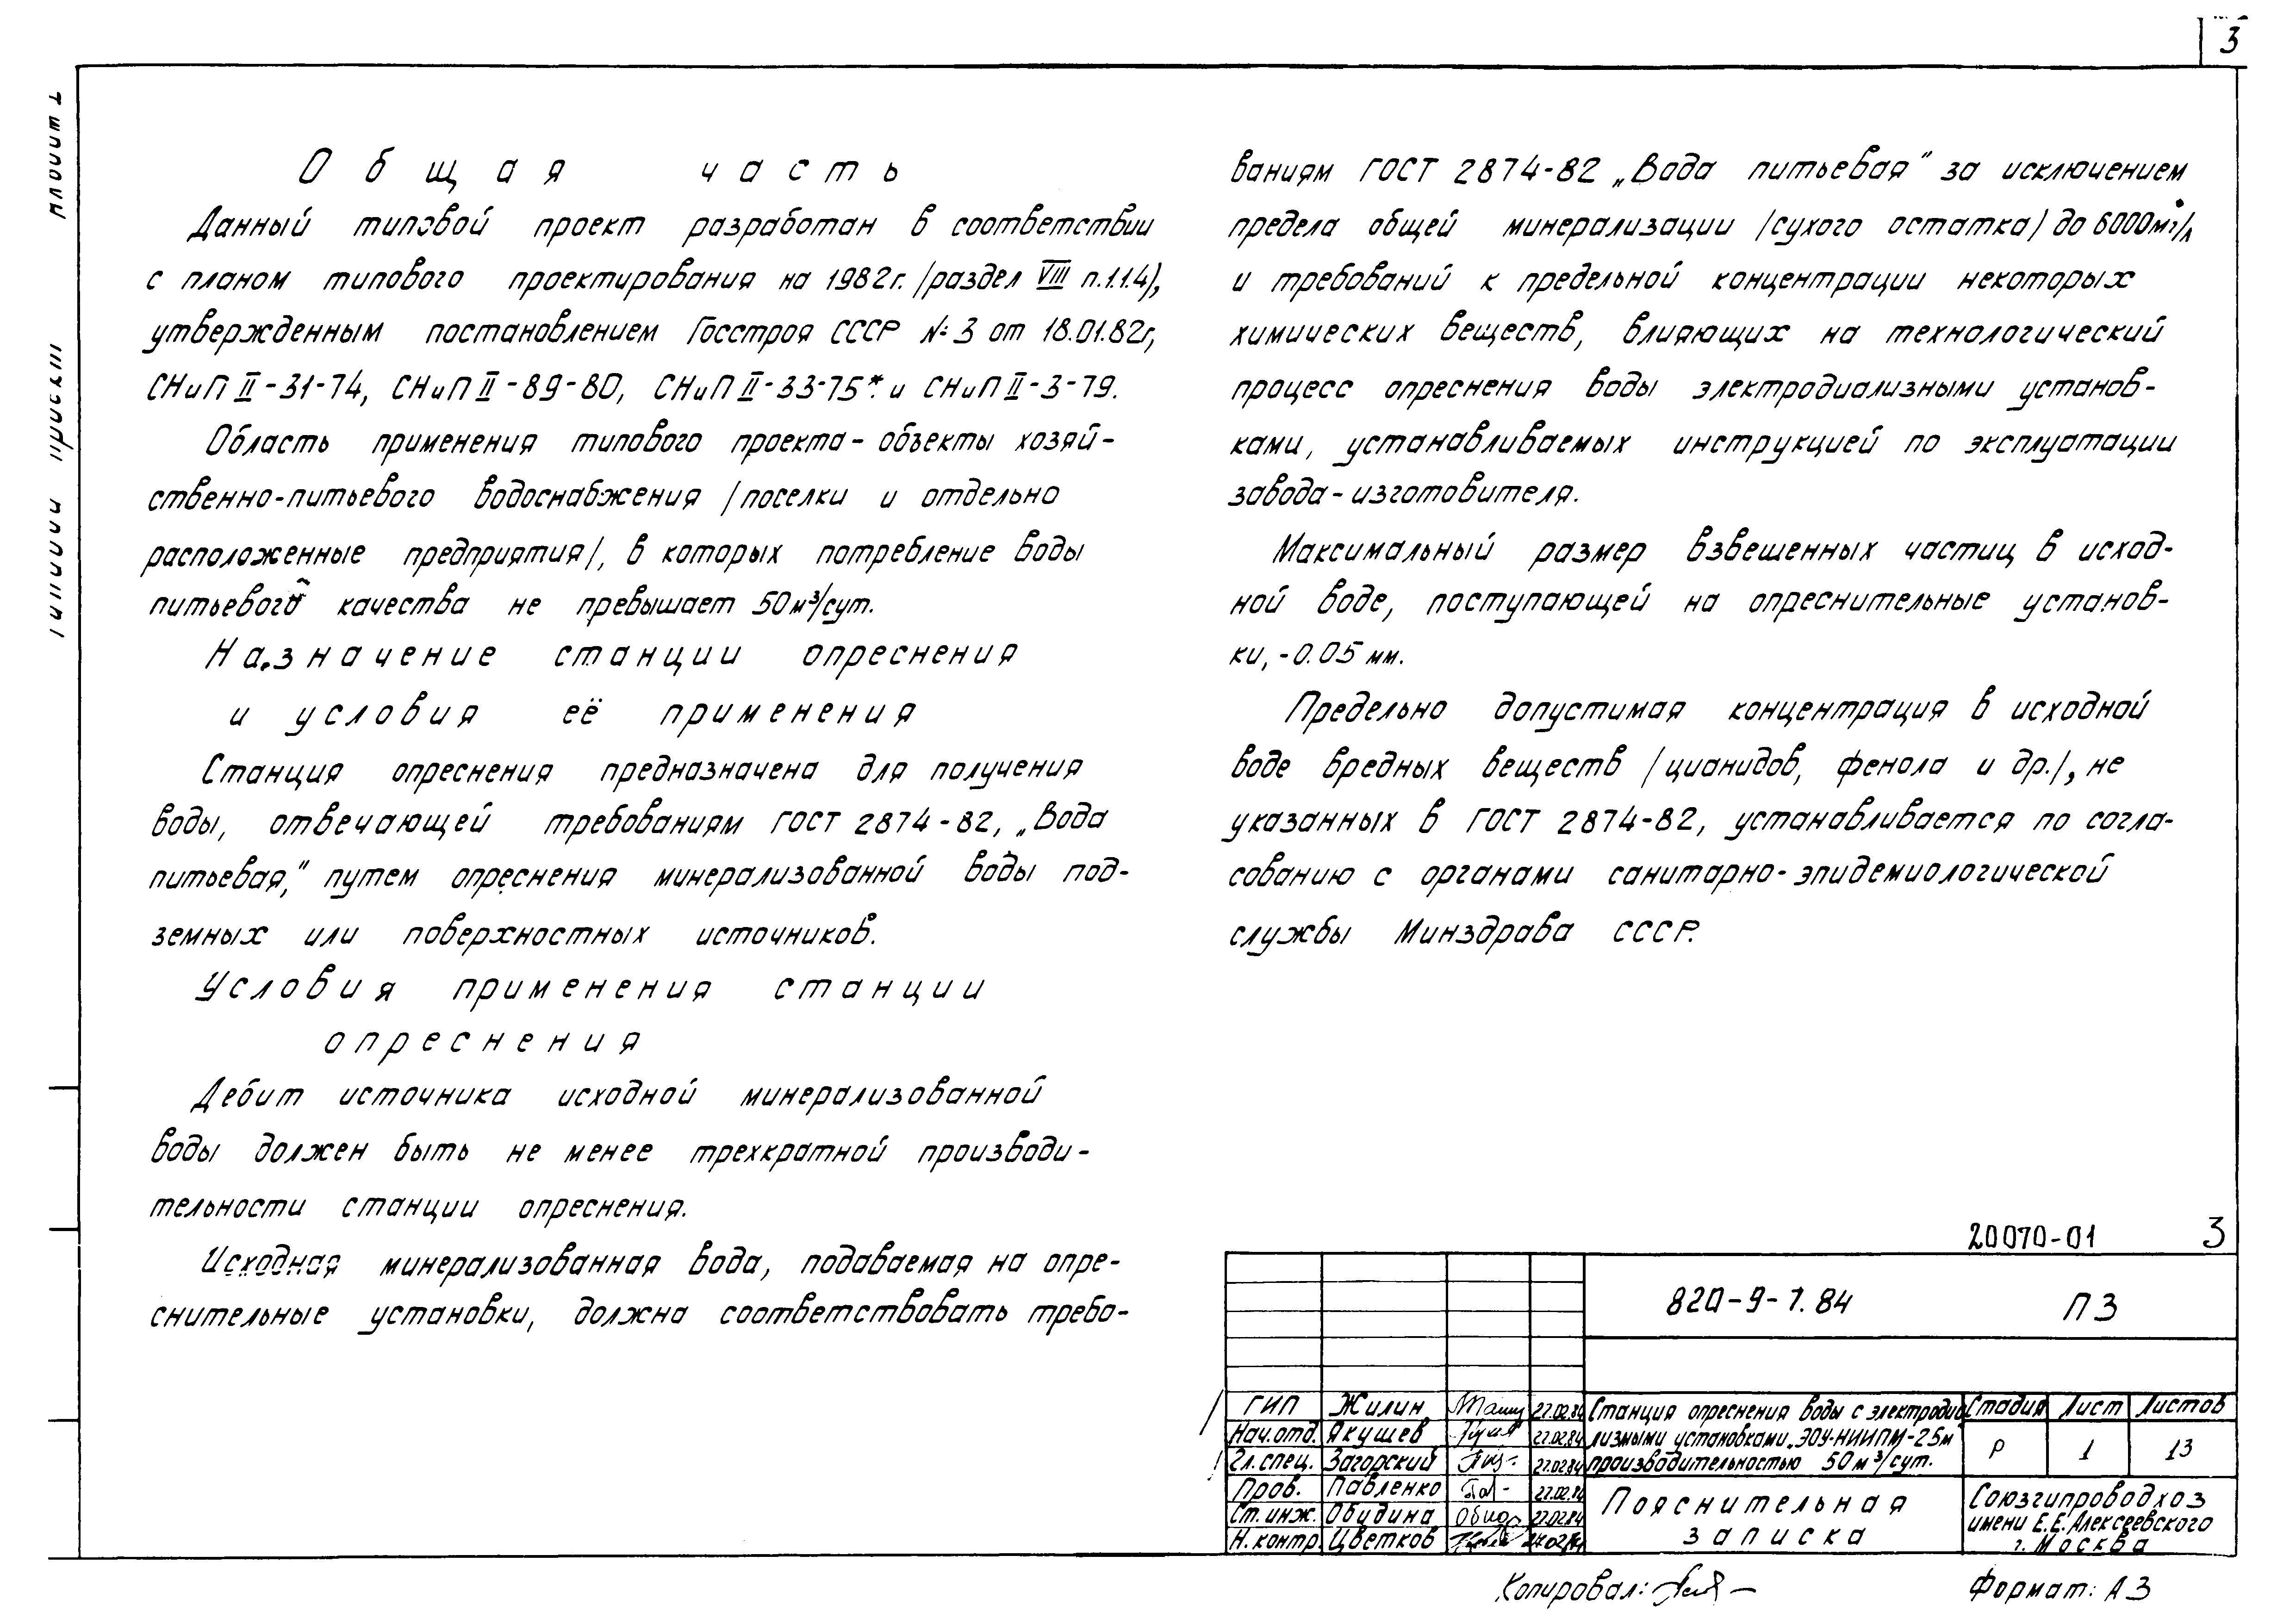 3
Общая часть
Данный типовой проект разработан в соответствии
с планом типового проектирования на 1982г. /раздел VIII п.1.1.4/,
утвержденным постановлением Госстроя СССР № 3 от 18.01.82г,
СНиП II-31-74, СНиП II-89-80, СНиП II-33-75*. и СНиП II-3-79.
Область применения типового проекта - объекты хозяй-
ственно-питьевого водоснабжения /поселки и отдельно
расположенные предприятия/, в которых потребление воды
питьевого качества не превышает 50м³/сут.
Назначение станции опреснения
и условия её применения
Станция опреснения предназначена для получения
воды, отвечающей требованиям ГОСТ 2874-82, „Вода
питьевая," путем опреснения минерализованной воды под-
земных или поверхностных источников.
Условия применения станции
опреснения
Дебит источника исходной минерализованной
воды должен быть не менее трехкратной производи-
тельности станции опреснения.
Исходная минерализованная вода, подаваемая на опре-
снительные установки, должна соответствовать требо-
ваниям ГОСТ 2874-82 „Вода питьевая" за исключением
предела общей минерализации /сухого остатка/ до 6000мг/л
и требований к предельной концентрации некоторых
химических веществ, влияющих на технологический
процесс опреснения воды электродиализными установ-
ками, устанавливаемых инструкцией по эксплуатации
завода-изготовителя.
Максимальный размер взвешенных частиц в исход-
ной воде, поступающей на опреснительные установ-
ки, - 0.05 мм.
Предельно допустимая концентрация в исходной
воде вредных веществ /цианидов, фенола и др./, не
указанных в ГОСТ 2874-82, устанавливается по согла-
сованию с органами санитарно-эпидемиологической
службы Минздрава СССР.
20070-01 3
820-9-7.84 ПЗ
ГИП Жилин 27.02.84
Нач.отд. Якушев 27.02.84
Гл.спец. Загорский 27.02.84
Пров. Павленко 27.02.84
Ст.инж. Обидина 27.02.84
Н.контр. Цветков
Станция опреснения воды с электродиа
лизными установками „ЭОУ-НИИПМ-25м"
производительностью 50м³/сут.
Стадия Лист Листов
Р 1 13
Пояснительная
записка
Союзгипроводхоз
имени Е.Е.Алексеевского
г. Москва
Копировал: Формат: А3